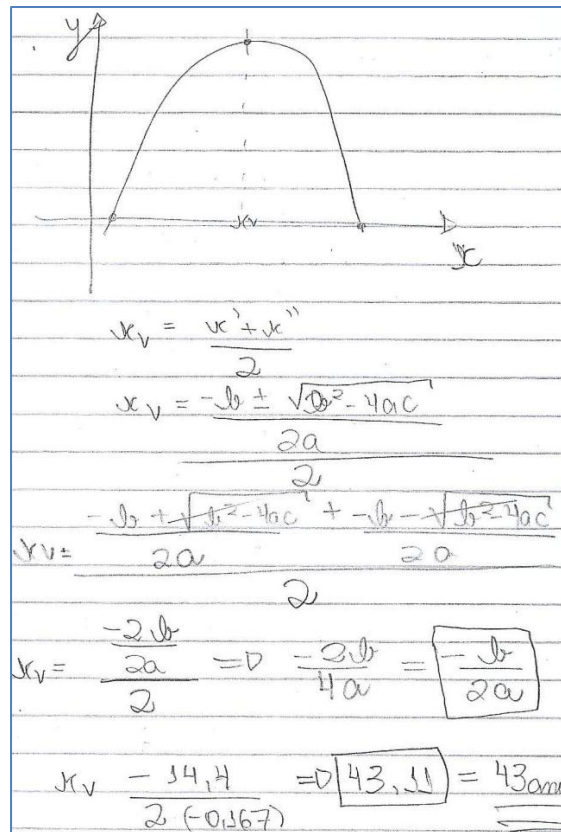 y
xv
x
xv = x' + x'' / 2
xv = -b ± √b² - 4ac / 2a / 2
xv = -b + √b² - 4ac / 2a + -b - √b² - 4ac / 2a / 2
xv = -2b / 2a / 2 => -2b / 4a = -b / 2a
xv -14,4 / 2(-0,167) => 43,11 = 43